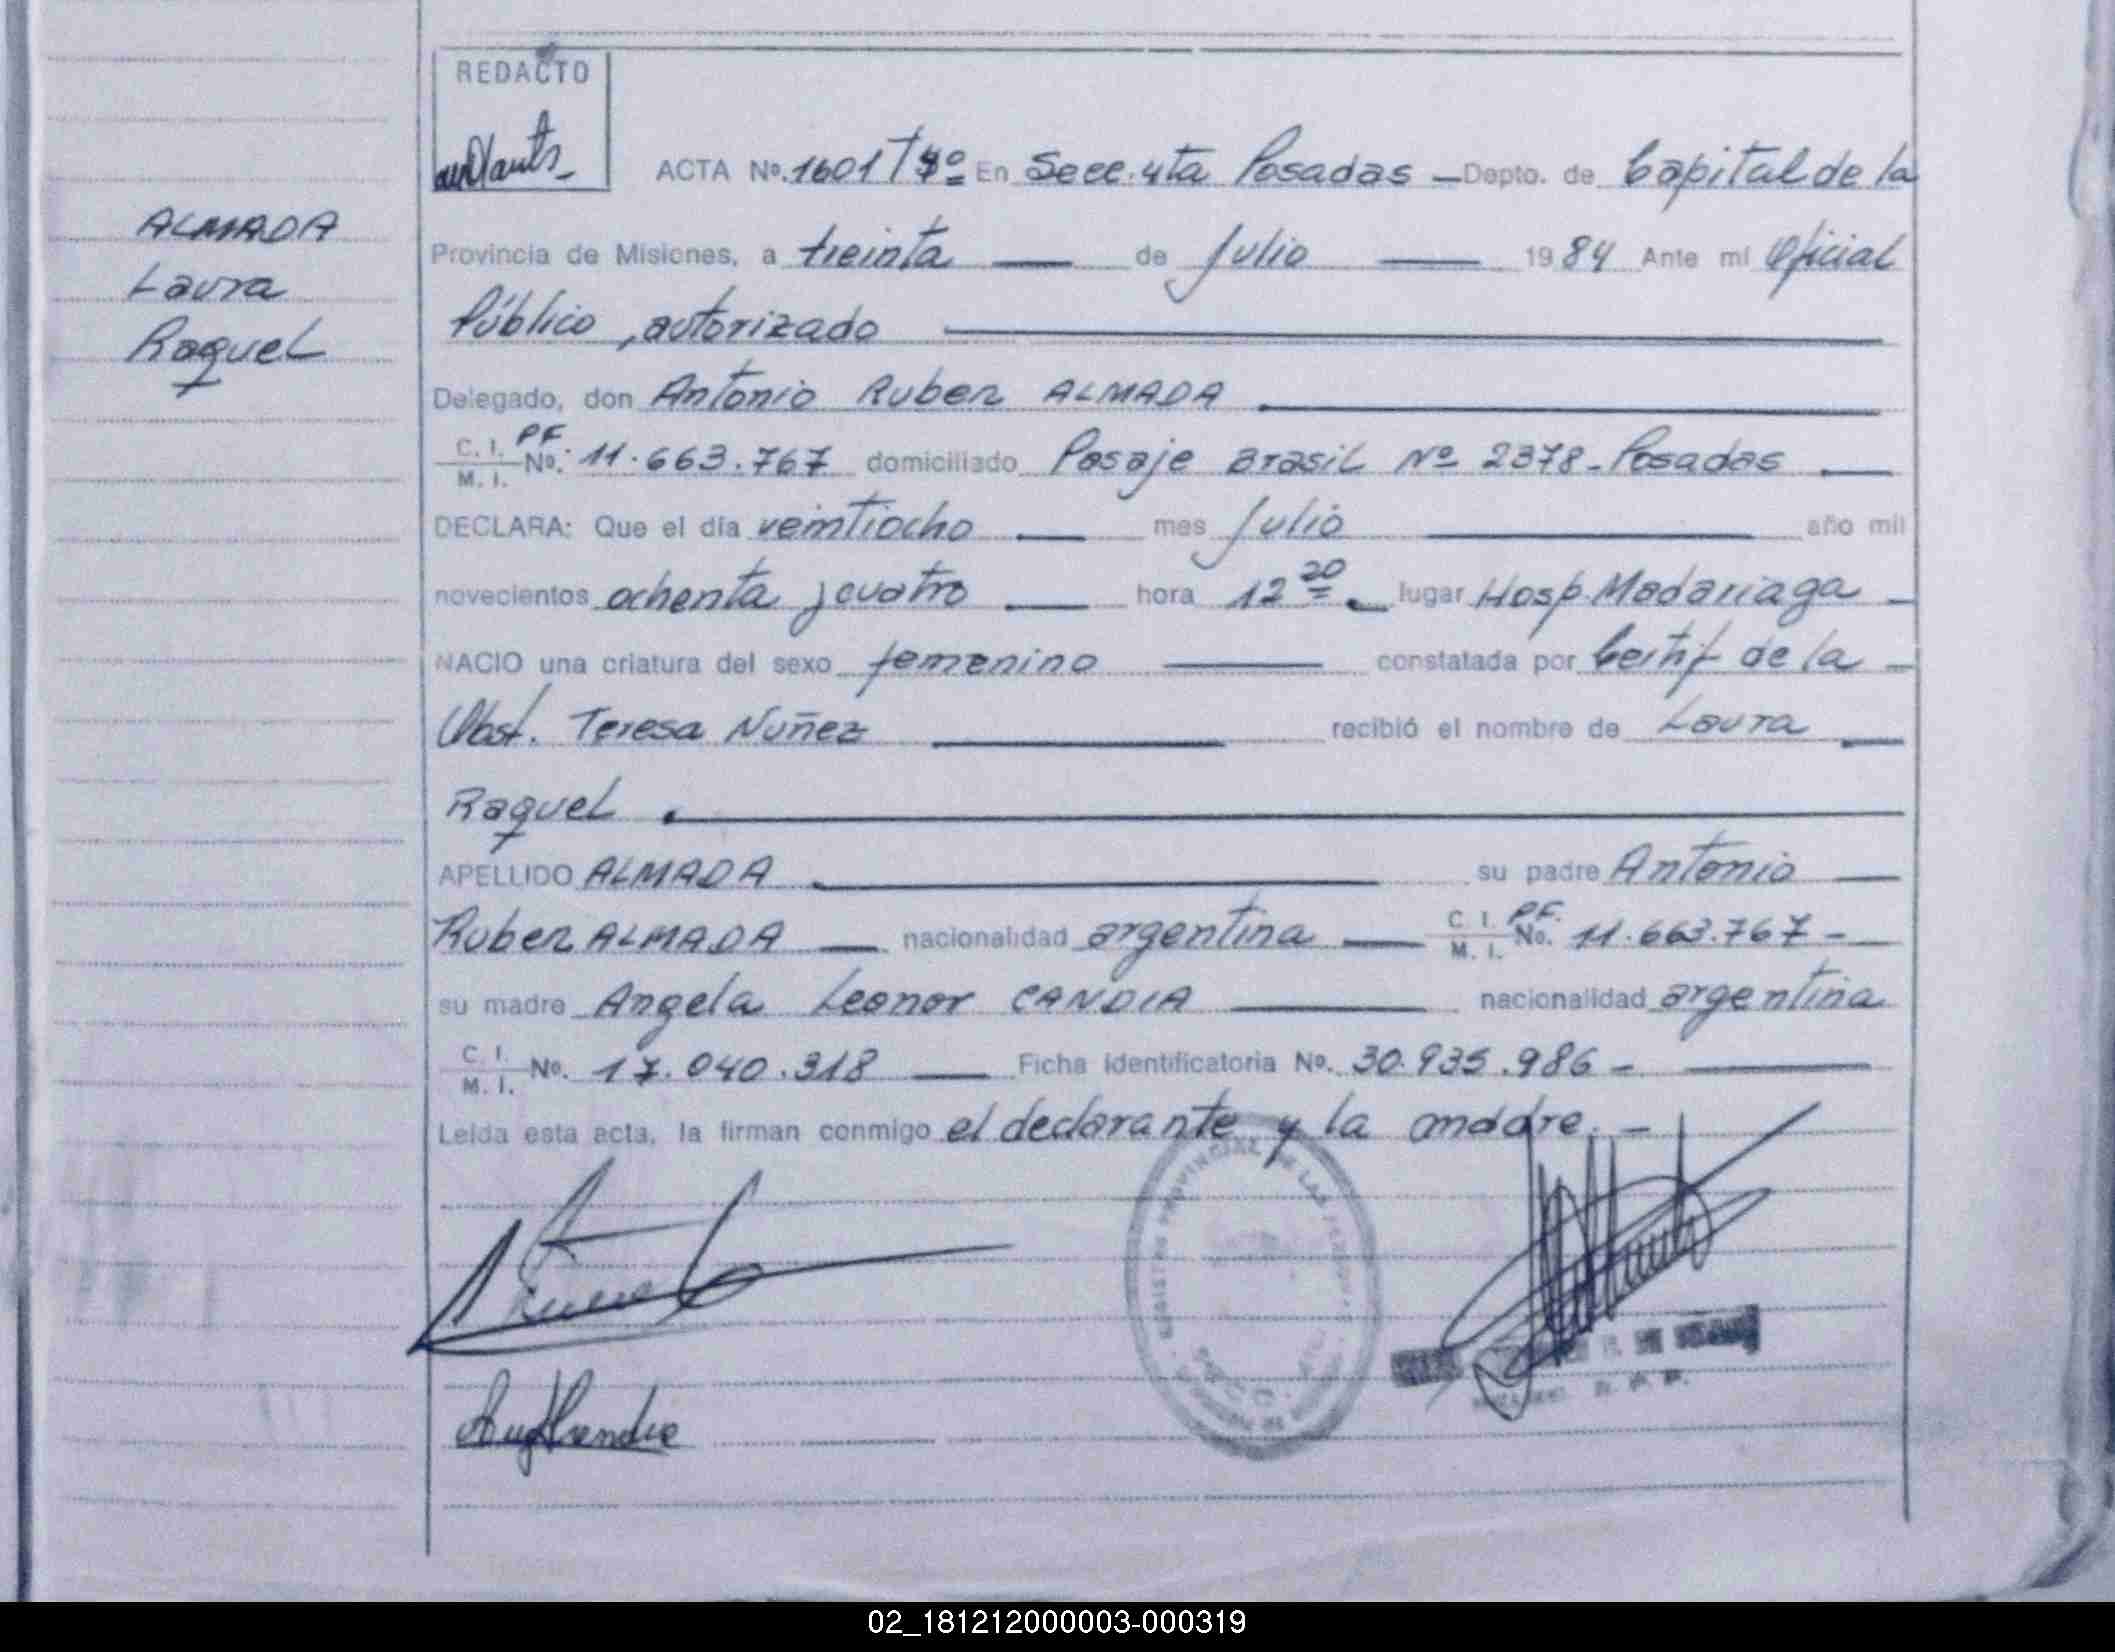 REDACTO
ACTA No. 1601 Tº 4º En Secc. 4ta Posadas — Depto. de Capital de la
ALMADA
Laura
Raquel
Provincia de Misiones, a treinta — de Julio — 1984 Ante mi Oficial
Público, autorizado —
Delegado, don Antonio Ruben ALMADA —
C. I. PF. M. I. No. 11.663.767 domiciliado Pasaje Brasil Nº 2378 - Posadas —
DECLARA: Que el día veintiocho — mes Julio — año mil
novecientos ochenta y cuatro — hora 12 20 — lugar Hosp. Madariaga —
NACIO una criatura del sexo femenino — constatada por Certif de la —
Obst. Teresa Nuñez — recibió el nombre de Laura —
Raquel —
APELLIDO ALMADA — su padre Antonio —
Ruben ALMADA — nacionalidad argentina — C. I. PF. M. I. No. 11.663.767 —
su madre Angela Leonor CANDIA — nacionalidad argentina
C. I. M. I. No. 17.040.318 — Ficha identificatoria No. 30.935.986 —
Leída esta acta, la firman conmigo el declarante y la madre. —
REGISTRO PROVINCIAL DE LAS PERSONAS
02_181212000003-000319